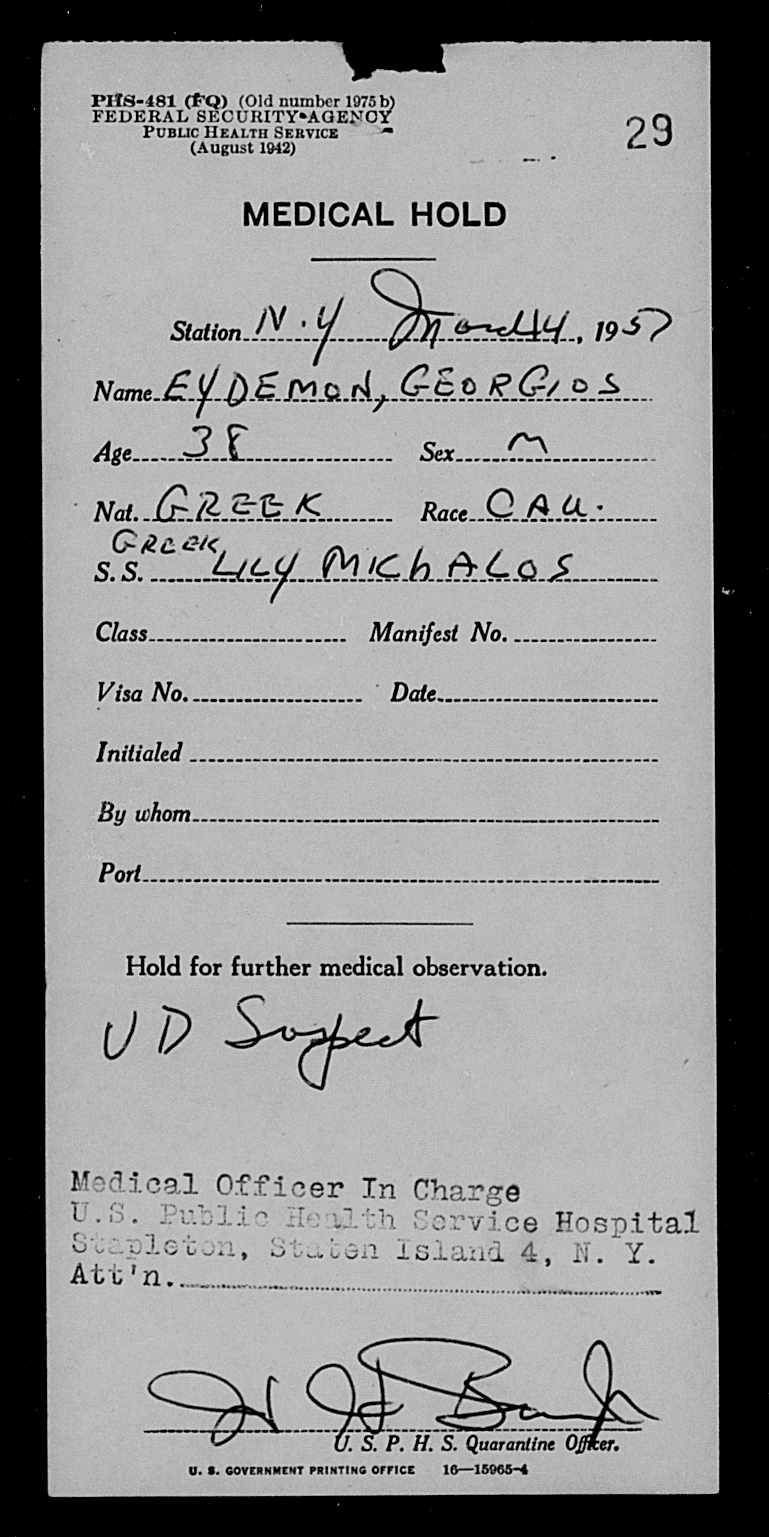 PHS-481 (FQ) (Old number 1975 b)
FEDERAL SECURITY AGENCY
PUBLIC HEALTH SERVICE
(August 1942)
29
MEDICAL HOLD
Station N.Y March 14, 1957
Name EYDEMON, GEORGIOS
Age 38 Sex M
Nat. GREEK Race CAU.
GREEK
S. S. LILY MIChALOS
Class Manifest No.
Visa No. Date
Initialed
By whom
Port
Hold for further medical observation.
VD Suspect
Medical Officer In Charge
U.S. Public Health Service Hospital
Stapleton, Staten Island 4, N. Y.
Att'n.
U. S. P. H. S. Quarantine Officer.
U. S. GOVERNMENT PRINTING OFFICE 16—15965-4